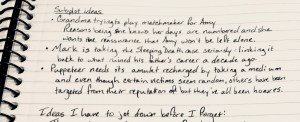 Subplot ideas
• Grandma trying to play matchmaker for Amy
Reasons being she knows her days are numbered and she
wants the reassurance that Amy won't be left alone.
• Mark is taking the Sleeping Death case seriously: linking it
back to what ruined his father's career a decade ago.
• Puppeteer needs its amulet recharged by taking a medium
and even though certain victims seem random, others have been
targeted from their reputation of but they've all been hoaxes.
Ideas I have to jot down before I forget: